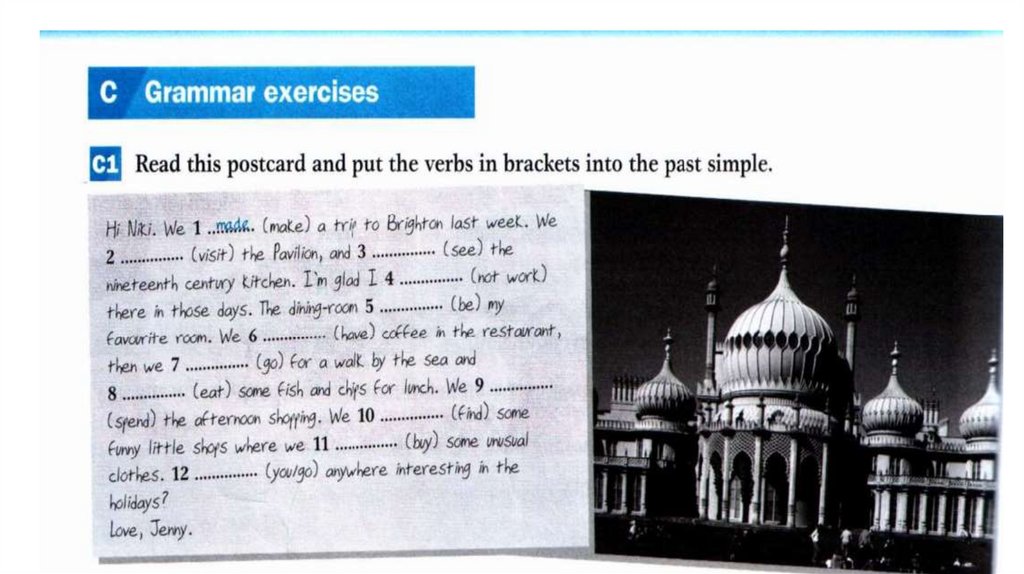 C Grammar exercises
C1 Read this postcard and put the verbs in brackets into the past simple.
Hi Niki. We 1 ..made.. (make) a trip to Brighton last week. We
2 ............... (visit) the Pavilion, and 3 ............... (see) the
nineteenth century kitchen. I'm glad I 4 ............... (not work)
there in those days. The dining-room 5 ............... (be) my
favourite room. We 6 ............... (have) coffee in the restaurant,
then we 7 ............... (go) for a walk by the sea and
8 ............... (eat) some fish and chips for lunch. We 9 ...............
(spend) the afternoon shopping. We 10 ............... (find) some
funny little shops where we 11 ............... (buy) some unusual
clothes. 12 ............... (you/go) anywhere interesting in the
holidays?
Love, Jenny.